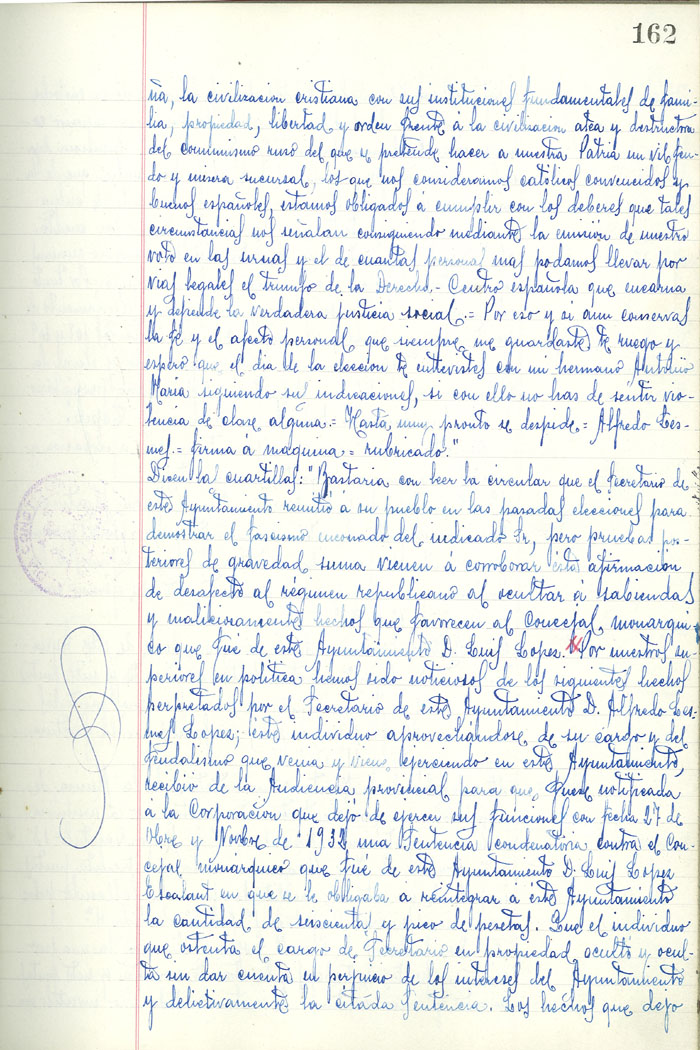 162
ña, la civilización cristiana con sus instituciones fundamentales de fami-
lia, propiedad, libertad y orden frente á la civilización atea y destructora
del comunismo ruso del que se pretende hacer a nuestra Patria un vil feu-
do y misera sucursal, los que nos consideramos católicos convencidos y
buenos españoles, estamos obligados á cumplir con los deberes que tales
circunstancias nos señalan consiguiendo mediante la emision de nuestro
voto en las urnas y el de cuantas personas mas podamos llevar por
vias legales el triunfo de la Derecha.- Centro española que encarna
y defiende la verdadera justicia social.= Por eso y si aun conservas
la fé y el afecto personal que siempre me guardaste te ruego y
espero que el dia de la eleccion te entrevistes con mi hermano Antonio
Maria siguiendo sus indicaciones, si con ello no has de sentir vio-
lencia de clase alguna.= Hasta muy pronto se despide= Alfredo Les-
mes.= firma á maquina = rubricado."
Dicen las cuartillas: "Bastaria con leer la circular que el Secretario de
este Ayuntamiento remitió á su pueblo en las pasadas elecciones para
demostrar el fascismo enconado del indicado Sr, pero pruebas pos-
teriores de gravedad suma vienen á corroborar esta afirmación
de desafecto al régimen republicano al ocultar á sabiendas
y maliciosamente hechos que favorecen al Concejal monarqui-
co que fué de este Ayuntamiento D. Luis Lopez. Por nuestros su-
periores en politica hemos sido noticiosos de los siguientes hechos
perpetrados por el Secretario de este Ayuntamiento D. Alfredo Les-
mes Lopez; este individuo aprovechándose de su cargo y del
feudalismo que venia y viene ejerciendo en este Ayuntamiento,
recibio de la Audiencia provincial para que fuese notificada
á la Corporacion que dejo de ejercer sus funciones con fecha 27 de
Obre y Novbre de 1932 una Sentencia condenatoria contra el Con-
cejal monárquico que fué de este Ayuntamiento D. Luis Lopez
Escalant en que se le obligaba a reintegrar á este Ayuntamiento
la cantidad de seiscientas y pico de pesetas. Que el individuo
que ostenta el cargo de Secretario en propiedad ocultó y ocul-
ta sin dar cuenta en perjuicio de los intereses del Ayuntamiento
y delictivamente la citada Sentencia. Los hechos que dejo